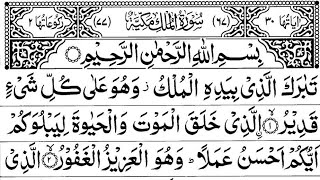 اٰیَاتُهَا ٣٠ (٦٧) سُوْرَةُ الْمُلْكِ مَكِّیَّةٌ (٧٧) رُكُوْعَاتُهَا ٢
بِسْمِ اللّٰهِ الرَّحْمٰنِ الرَّحِیْمِ
تَبٰرَكَ الَّذِیْ بِیَدِهِ الْمُلْكُ ز وَهُوَ عَلٰی كُلِّ شَیْءٍ
قَدِیْرُ ۝١ اۨلَّذِیْ خَلَقَ الْمَوْتَ وَالْحَیٰوةَ لِیَبْلُوَكُمْ
اَیُّكُمْ اَحْسَنُ عَمَلًا ؕ وَهُوَ الْعَزِیْزُ الْغَفُوْرُ ۝٢ الَّذِیْ